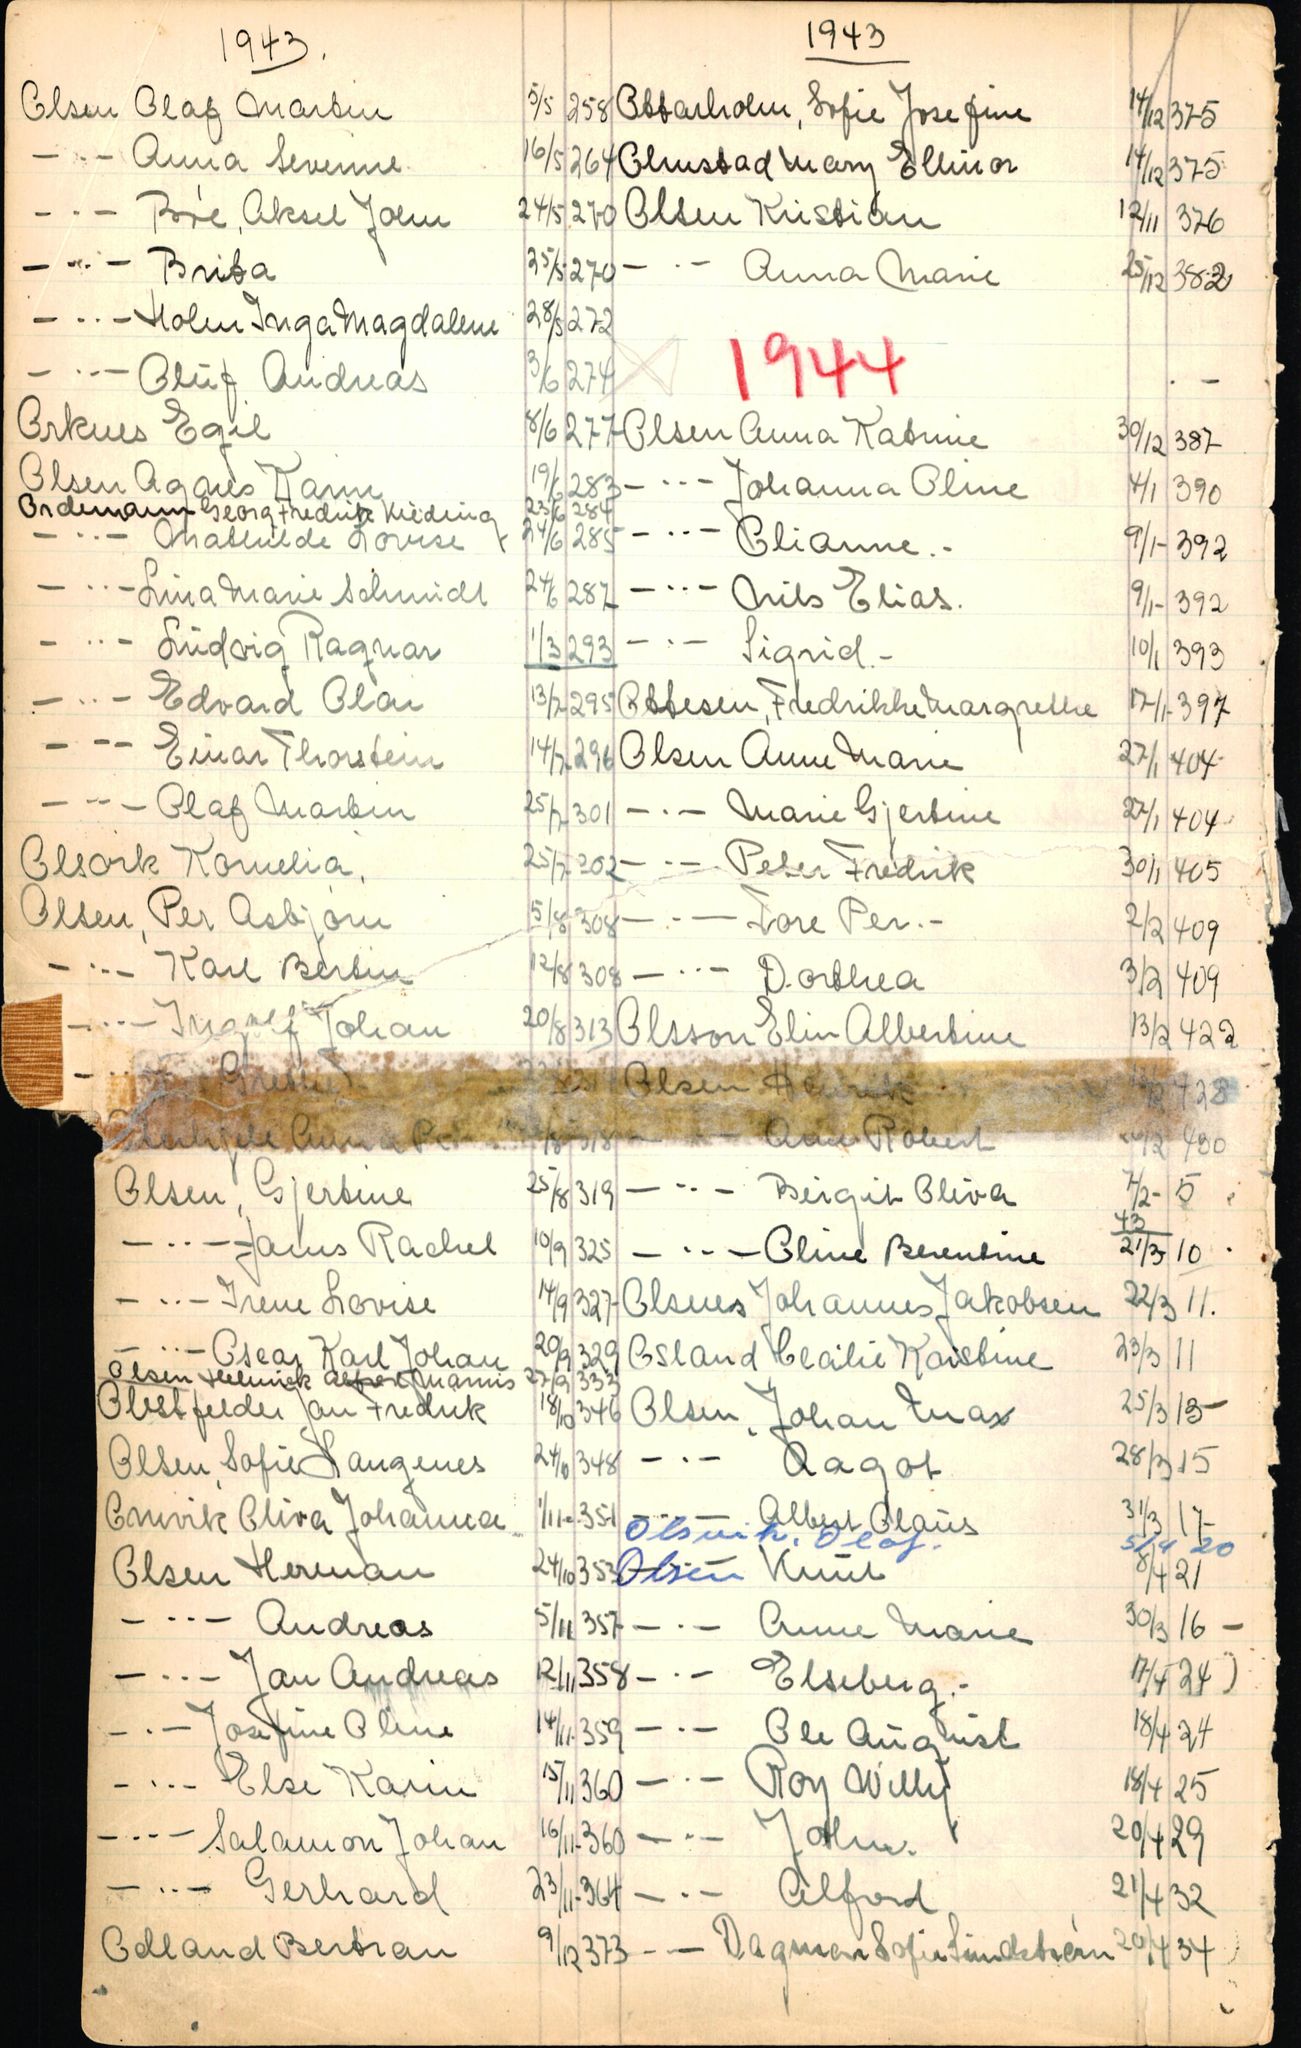 1943.
Olsen Olaf Martin 5/5 258
- " - Anna Severine 16/5 264
- " - Bøe, Aksel John 24/5 270
- " - Brita 25/5 270
- " - Holm Inga Magdalene 28/5 272
- " - Oluf Andreas 3/6 274
Orknes Egil 8/6 277
Olsen Agnes Karin 19/6 283
Ordemann Georg Fredrik 23/6 284
- " - Mathilde Lovise 24/6 285
- " - Lina Marie Schmidt 24/6 287
- " - Ludvig Ragnar 1/3 293
- " - Edvard Olai 13/7 295
- " - Einar Thorstein 14/7 296
- " - Olaf Martin 25/7 301
Olsvik Kornelia. 25/7 302
Olsen, Per Asbjørn 5/8 308
- " - Karl Bertin 12/8 308
- " - Johan 20/8 313
- " -
Anna 318
Olsen, Gjertine 25/8 319
- " - Rachel 10/9 325
- " - Irene Lovise 14/9 327
- " - Oscar Karl Johan 20/9 329
Olsen 27/9 333
Obstfelder Jan Fredrik 18/10 346
Olsen, Sofie Haugenes 24/10 348
Omvik Oliva Johanna 1/11 351
Olsen Herman 24/10 353
- " - Andreas 5/11 357
- " - Jan Andreas 12/11 358
- " - Josefine Oline 14/11 359
- " - Else Karin 15/11 360
- " - Salamon Johan 16/11 360
- " - Gerhard 23/11 364
Odland Bertran 9/12 373
1943
Ottarholm, Sofie Josefine 14/12 375
Olmstad Mary Ellinor 14/12 375
Olsen Kristian 12/11 376
- " - Anna Marie 25/12 382
1944
Olsen Anna Katrine 30/12 387
- " - Johanna Oline 4/1 390
- " - Olianne.- 9/1 392
- " - Nils Elias. 9/1 392
- " - Sigrid.- 10/1 393
Ottesen, Fredrikke Margrethe 17/1 397
Olsen Anne Marie 27/1 404
- " - Marie Gjertine 27/1 404
- " - Peter Fredrik 30/1 405
- " - Tore Per.- 2/2 409
- " - Dorthea 3/2 409
Olsson Elin Albertine 13/2 422
Olsen Henrik 428
- " - Robert 430
- " - Birgit Oliva 7/2 - 5
43
- " - Oline Berentine 21/3 10
Olsnes Johannes Jakobsen 22/3 11.
Osland Cecilie Kristine 23/3 11
Olsen, Johan Max 25/3 13
- " - Aagot 28/3 15
- " - Albert Olaus 31/3 17
Olsvik, Olaf. 5/4 20
Olsen Knut 8/4 21
- " - Anne Marie 30/3 16 -
- " - Elseberg.- 17/4 24
- " - Ole August 18/4 24
- " - Roy Willy 18/4 25
- " - John. 20/4 29
- " - Alfred 21/4 32
- " - Dagmar Sofie Lindstrøm 20/4 34